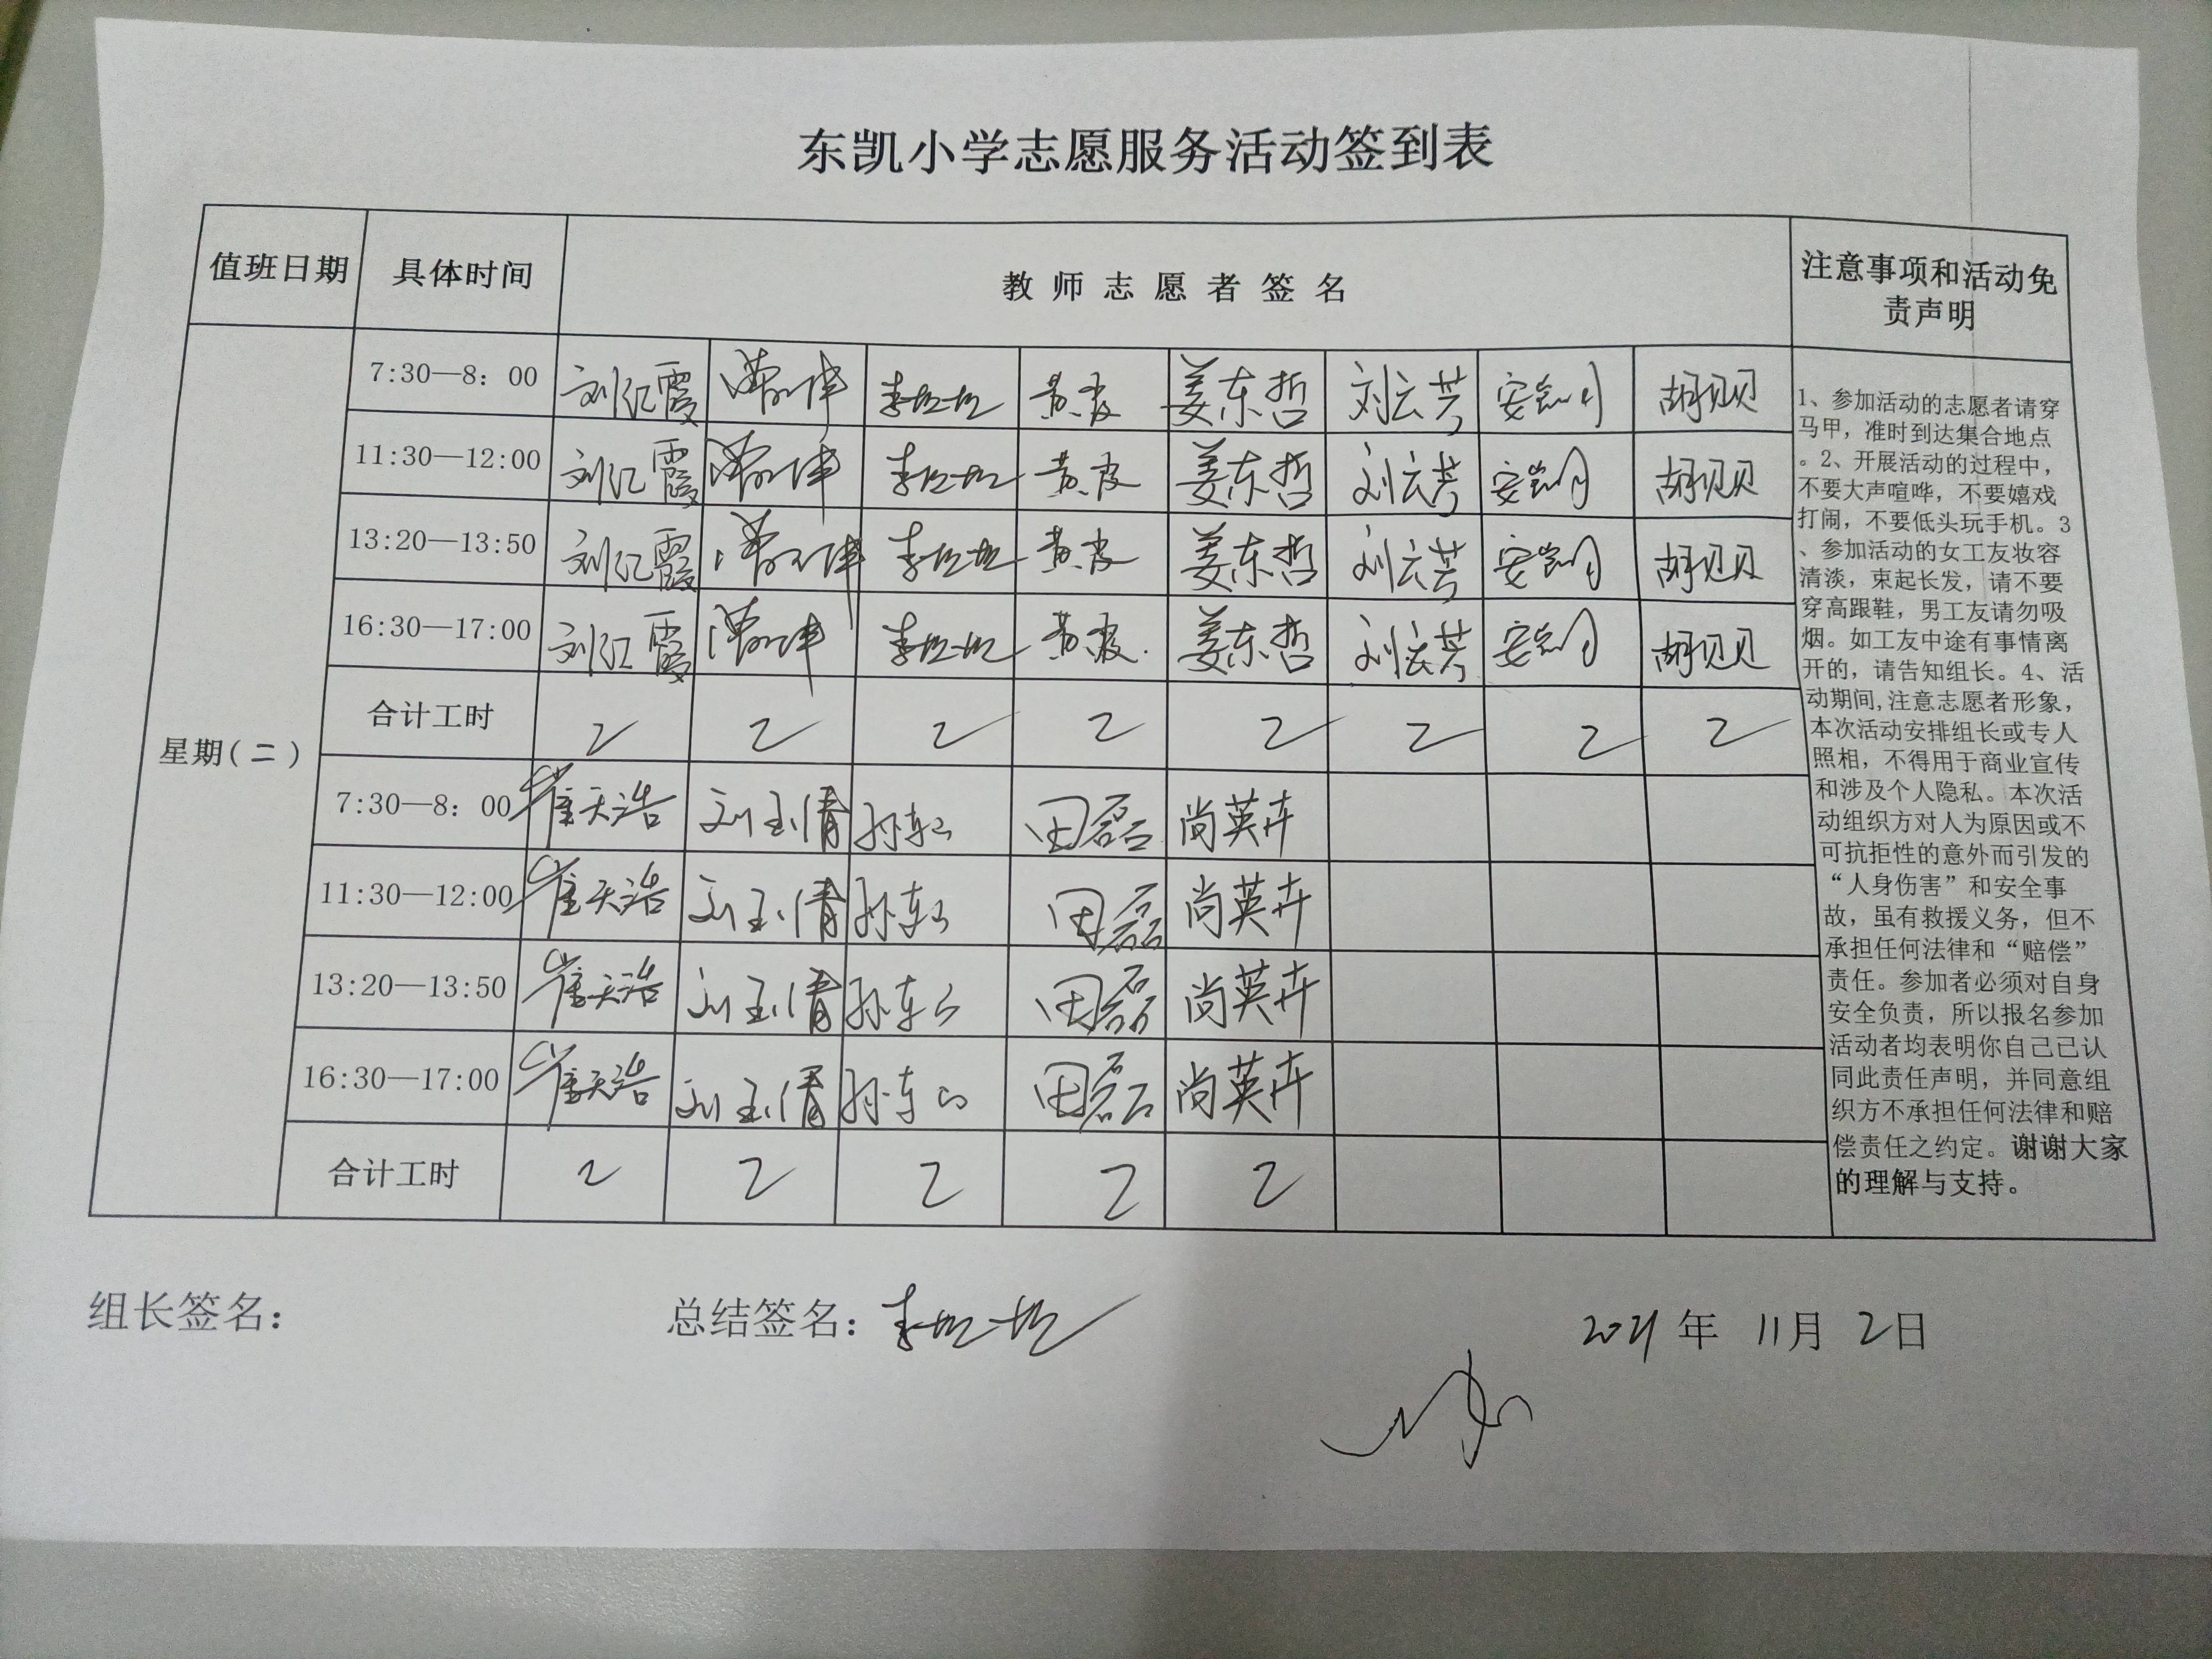 东凯小学志愿服务活动签到表
值班日期 具体时间 教师志愿者签名 注意事项和活动免
责声明
星期(二)
7:30—8：00 刘红霞 姜东哲 刘云芳 胡贝贝
11:30—12:00 刘红霞 姜东哲 刘云芳 胡贝贝
13:20—13:50 刘红霞 姜东哲 刘云芳 胡贝贝
16:30—17:00 刘红霞 姜东哲 刘云芳 胡贝贝
合计工时 2 2 2 2 2 2 2 2
7:30—8：00 崔天浩 刘玉倩 田磊 尚英卉
11:30—12:00 崔天浩 刘玉倩 田磊 尚英卉
13:20—13:50 崔天浩 刘玉倩 田磊 尚英卉
16:30—17:00 崔天浩 刘玉倩 田磊 尚英卉
合计工时 2 2 2 2 2
1、参加活动的志愿者请穿
马甲，准时到达集合地点
。2、开展活动的过程中，
不要大声喧哗，不要嬉戏
打闹，不要低头玩手机。3
、参加活动的女工友妆容
清淡，束起长发，请不要
穿高跟鞋，男工友请勿吸
烟。如工友中途有事情离
开的，请告知组长。4、活
动期间,注意志愿者形象，
本次活动安排组长或专人
照相，不得用于商业宣传
和涉及个人隐私。本次活
动组织方对人为原因或不
可抗拒性的意外而引发的
“人身伤害”和安全事
故，虽有救援义务，但不
承担任何法律和“赔偿”
责任。参加者必须对自身
安全负责，所以报名参加
活动者均表明你自己已认
同此责任声明，并同意组
织方不承担任何法律和赔
偿责任之约定。谢谢大家
的理解与支持。
组长签名： 总结签名： 2021年 11月 2日